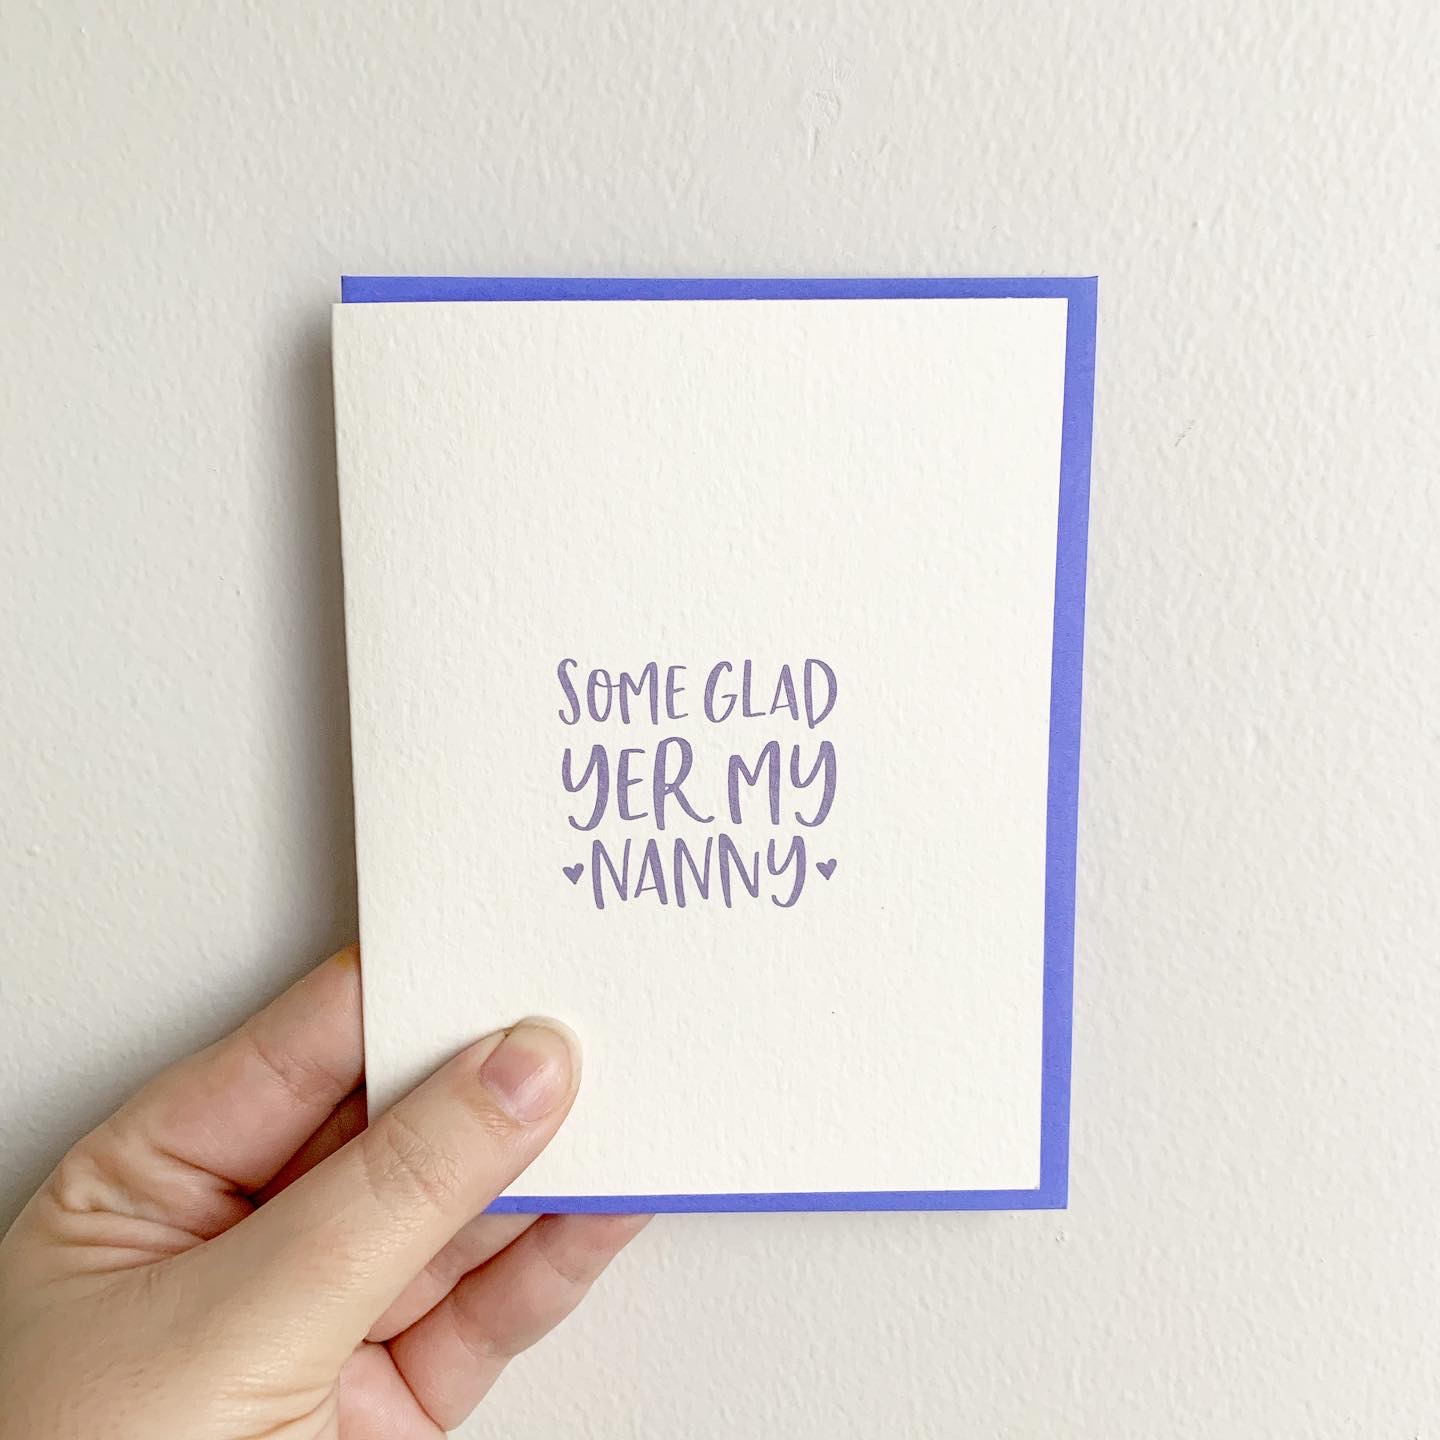 SOME GLAD
YER MY
NANNY